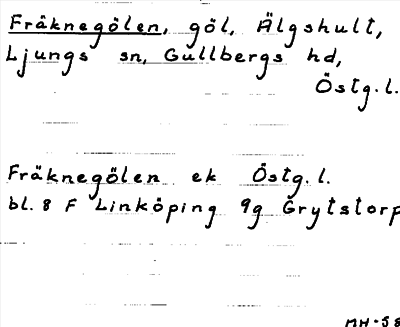 Fräknegölen, göl, Älgshult,
Ljungs sn, Gullbergs hd,
Östg.l.
Fräknegölen ek Östg.l.
bl. 8 F Linköping 9g Grytstorp
MH-58